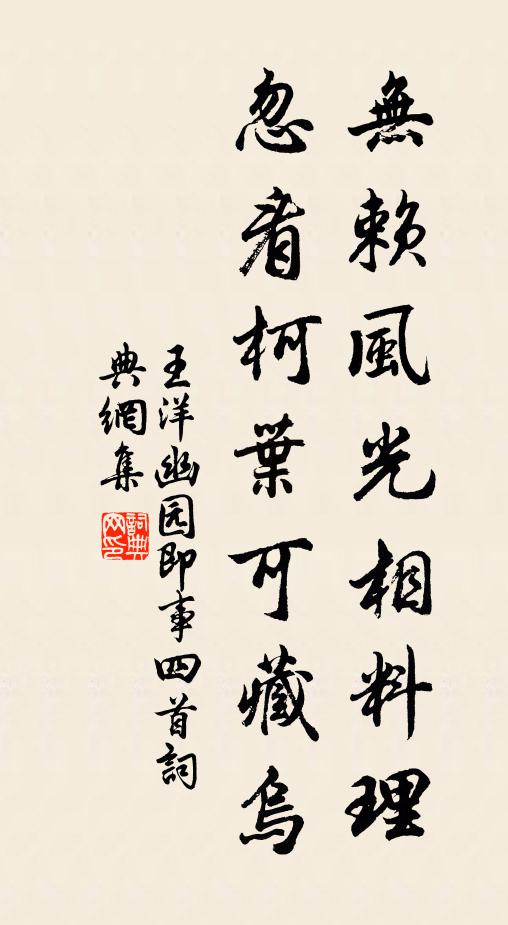 無賴風光相料理
忽看柯葉可藏烏
王洋幽园即事四首詞
典網集
詞典
网印